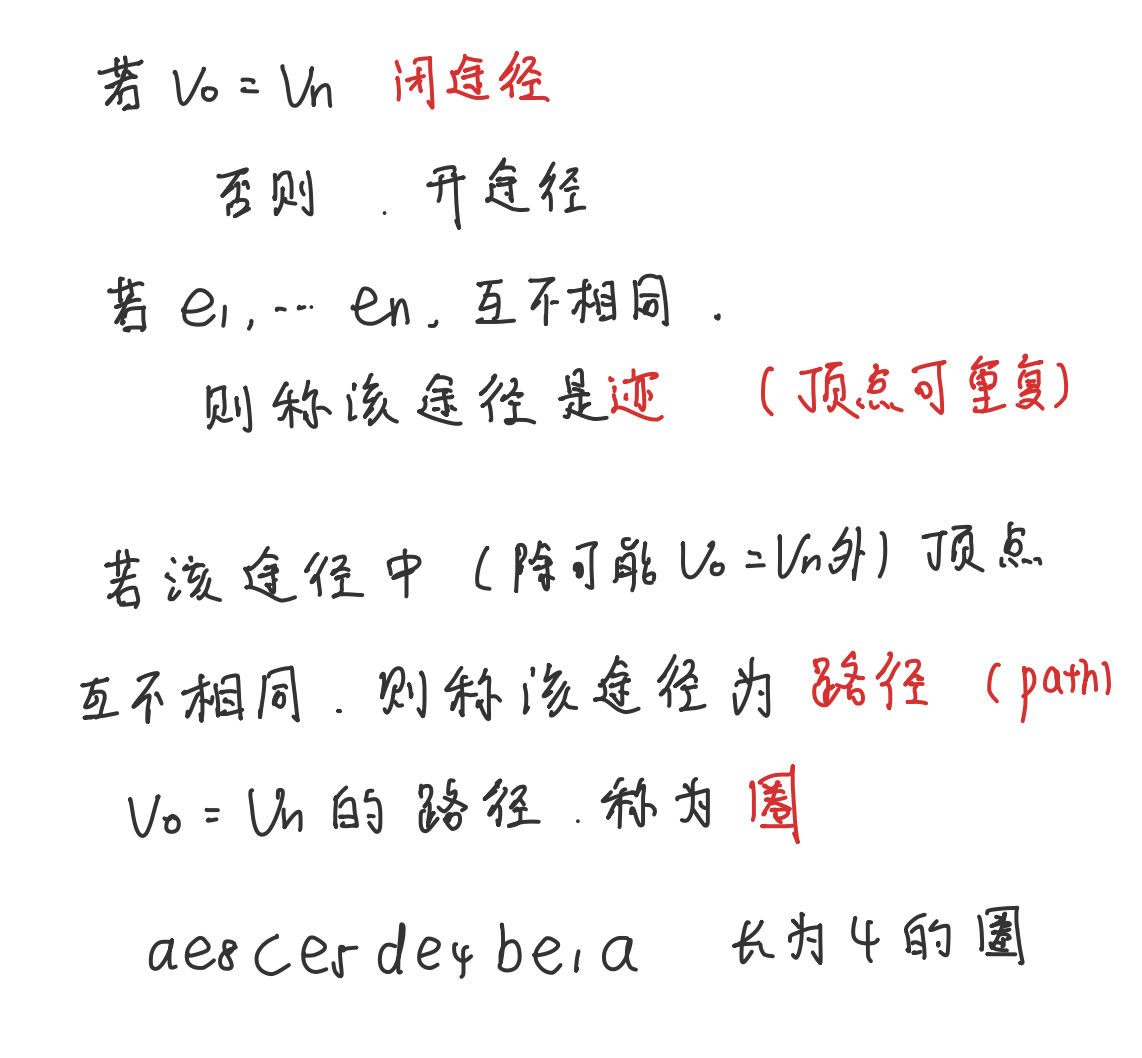 若 v0 = vn 闭途径
否则 . 开途径
若 e1, … en, 互不相同 .
则称该途径是迹 (顶点可重复)
若该途径中 (除可能 v0 = vn外) 顶点
互不相同 . 则称该途径为 路径 (path)
v0 = vn 的路径 . 称为 圈
ae8ce5de4be1a 长为4的圈